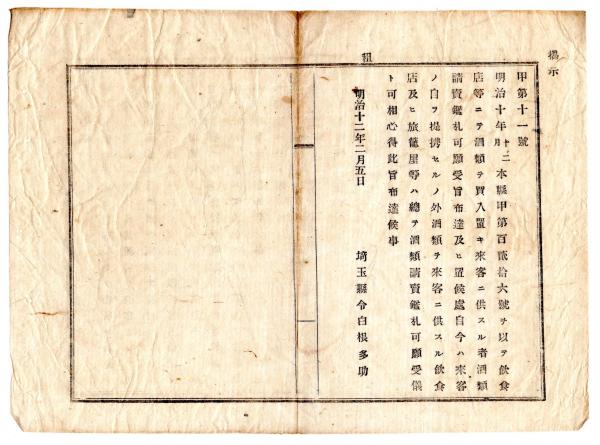 掲示
租
甲第十一號
明治十年十二月本縣甲第百貳拾六號ヲ以テ飲食
店等ニテ酒類ヲ買入置キ來客ニ供スル者酒類
請賣鑑札可願受旨布達及ヒ置候處自今ハ來客
ノ自ヲ提携セルノ外酒類ヲ來客ニ供スル飲食
店及ヒ旅籠屋等ハ總テ酒類請賣鑑札可願受儀
ト可相心得此旨布達候事
明治十二年二月五日
埼玉縣令白根多助